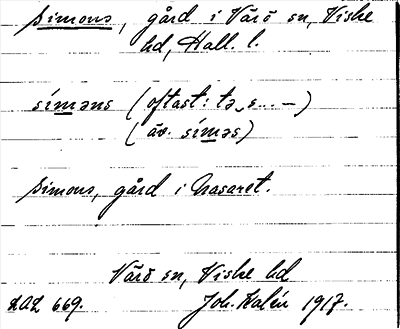 Simons, gård i Värö sn, Viske
hd, Hall. l.
síməns (oftast: tə s... –)
(äv. síməs)
Simons, gård i Nasaret.
Värö sn, Viske hd
LAL 669. Joh. Kalén 1917.